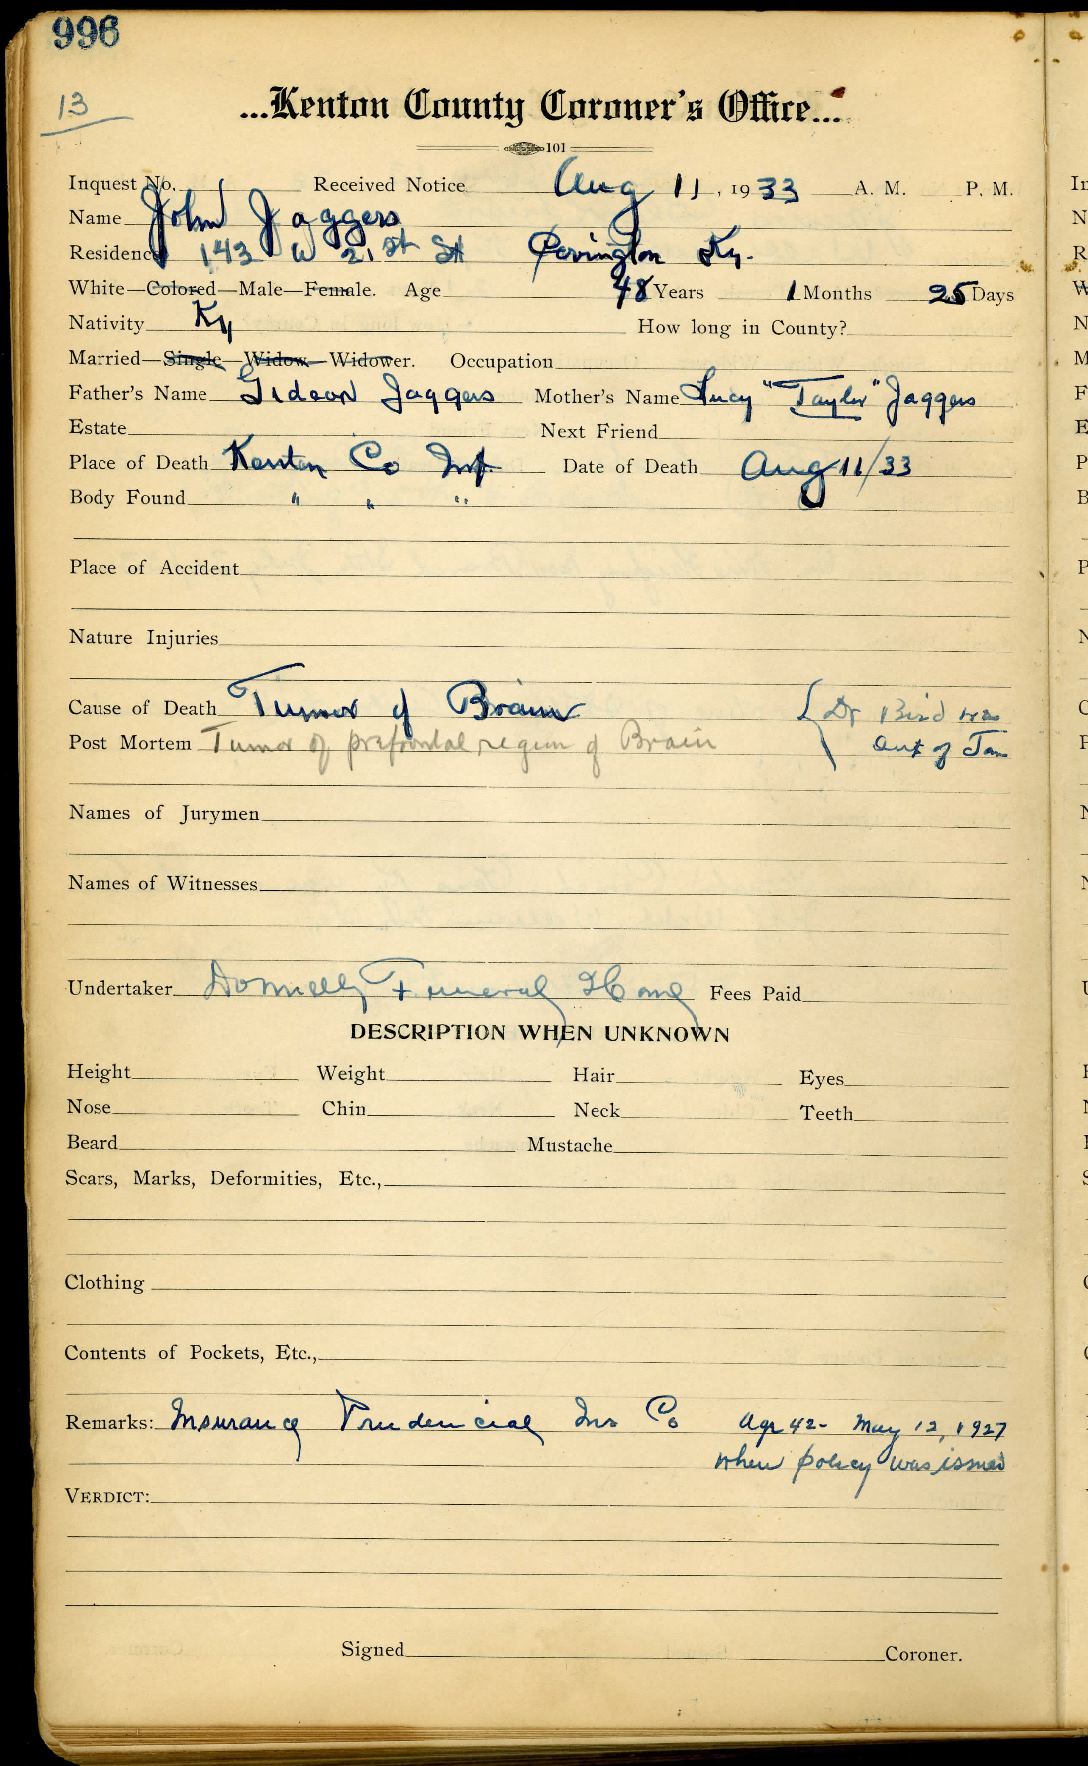 996
13
...Kenton County Coroner's Office...
101
Inquest No. Received Notice Aug 11, 1933 A. M. P. M.
Name John Jaggers
Residence 143 W 21st St Covington Ky.
White—Colored—Male—Female. Age 48 Years 1 Months 25 Days
Nativity Ky How long in County?
Married—Single—Widow—Widower. Occupation
Father's Name Gideon Jaggers Mother's Name Lucy "Taylor" Jaggers
Estate Next Friend
Place of Death Kenton Co Inf Date of Death Aug 11/33
Body Found " " "
Place of Accident
Nature Injuries
Cause of Death Tumor of Brain { Dr Bird was
Post Mortem Tumor of prefrontal region of Brain out of Town
Names of Jurymen
Names of Witnesses
Undertaker Donnelly Funeral Home Fees Paid
DESCRIPTION WHEN UNKNOWN
Height Weight Hair Eyes
Nose Chin Neck Teeth
Beard Mustache
Scars, Marks, Deformities, Etc.,
Clothing
Contents of Pockets, Etc.,
Remarks: Insurance Prudencial Ins Co Age 42- May 12, 1927
when policy was issued
VERDICT:
Signed Coroner.